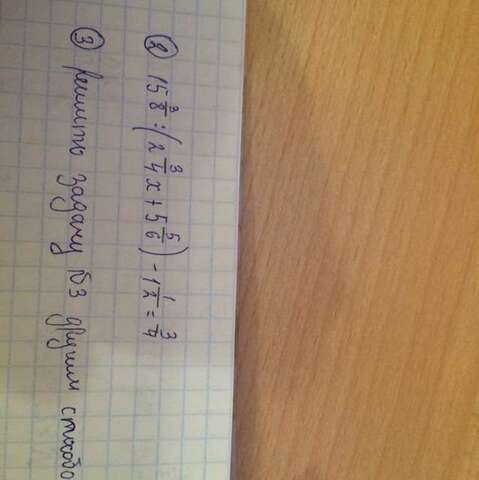 ② 15 3/8 : (2 3/4 x + 5 5/6) - 1 1/2 = 3/4
③ решить задачу №3 другим способо